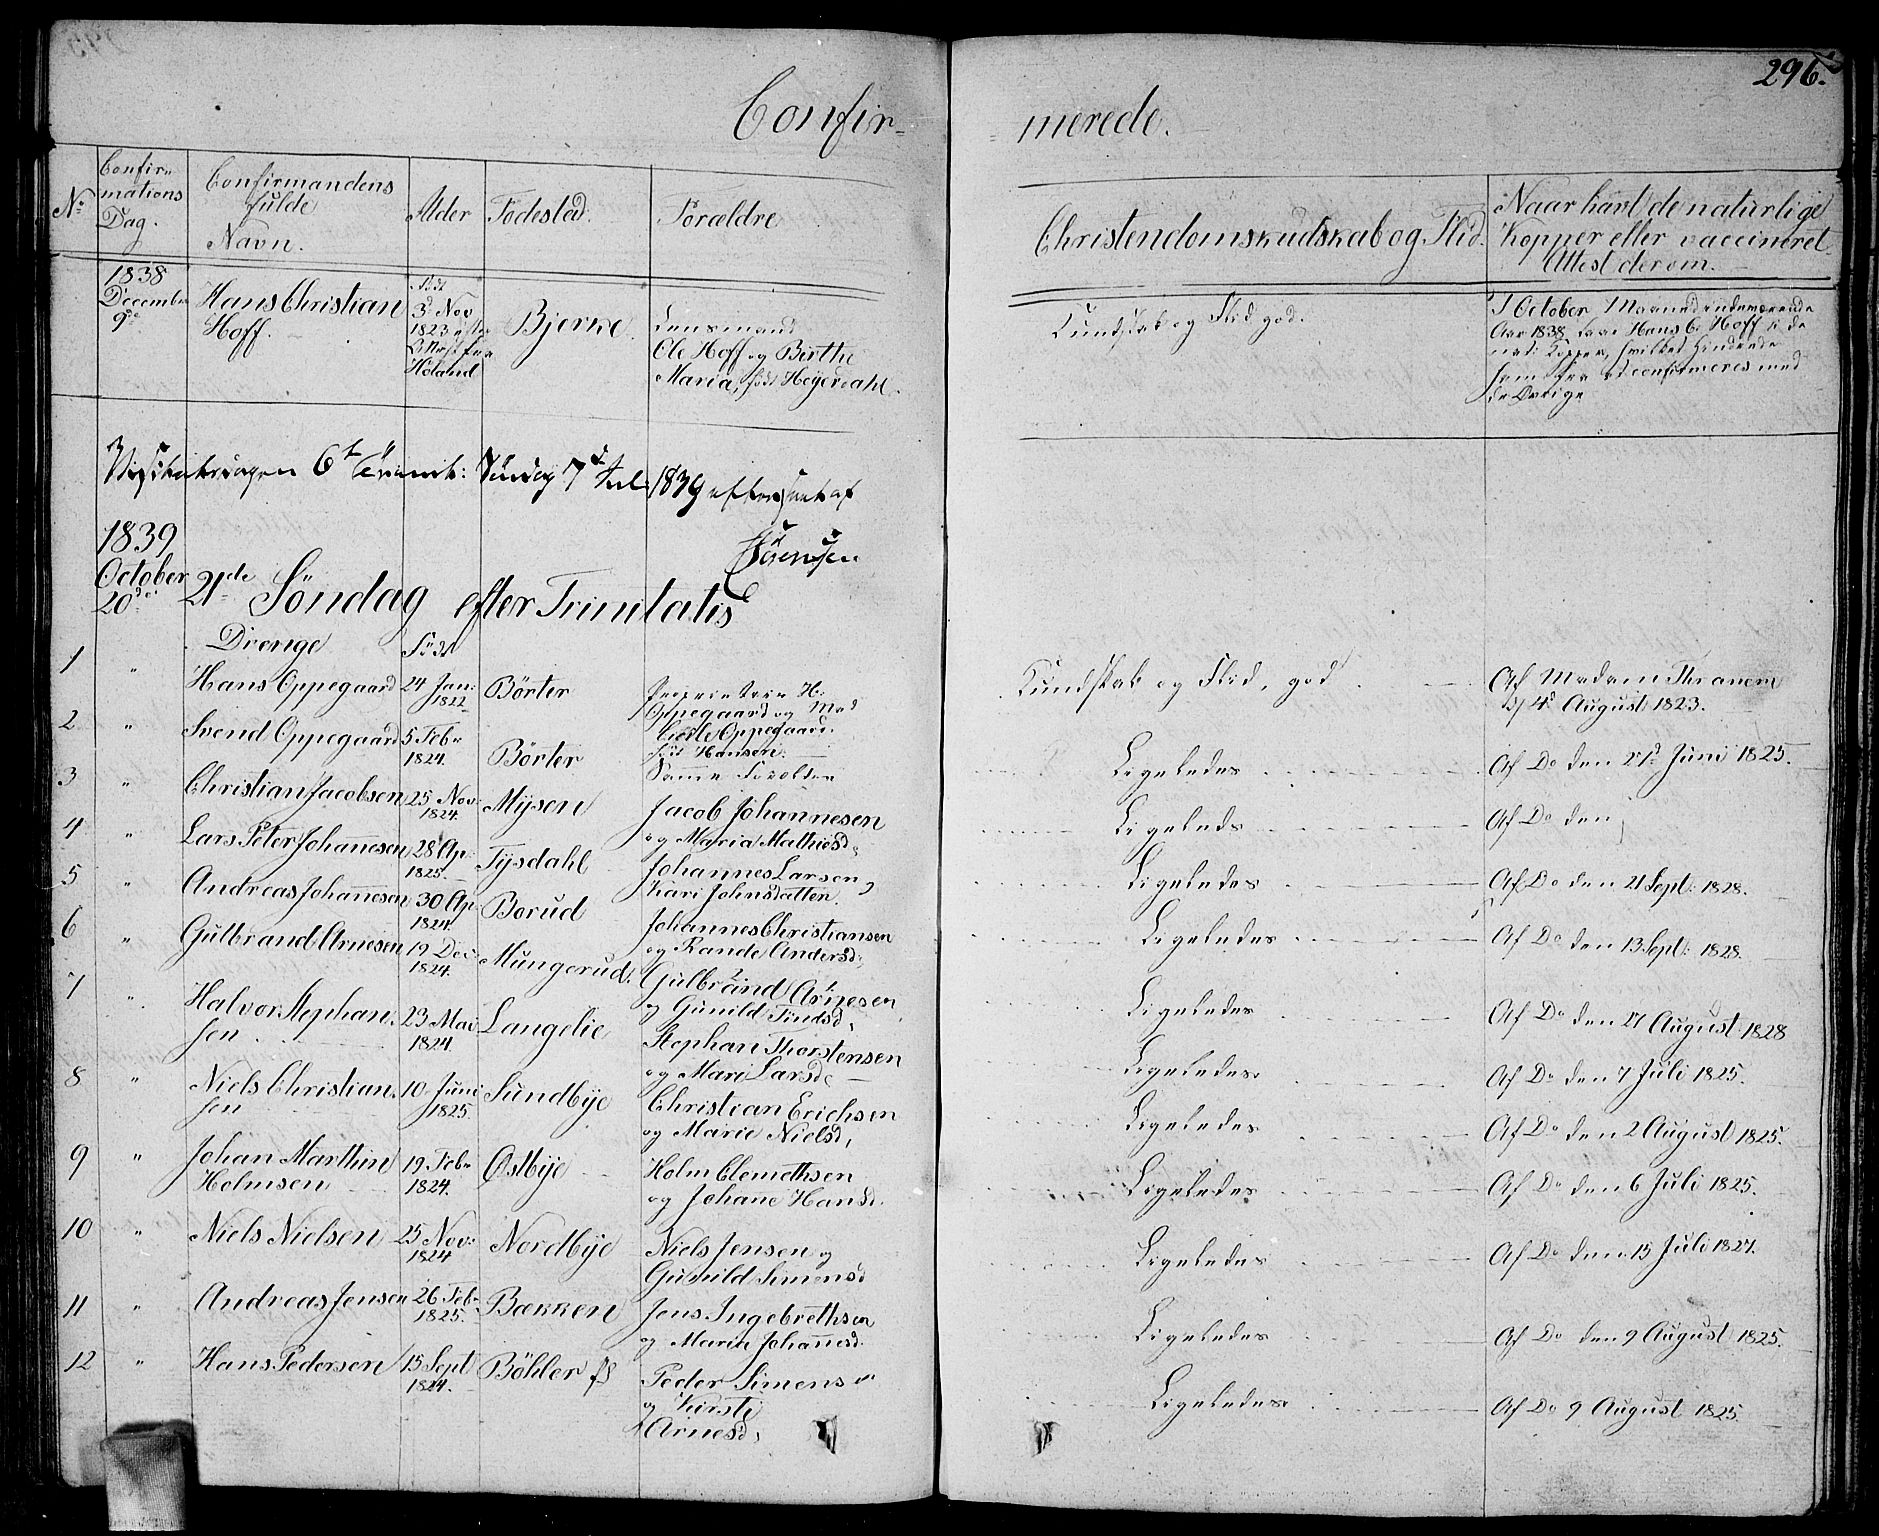 296.
Confir-
merede.
No
Confir-
mations
Dag.
Confirmandens
fulde
Navn.
Alder
Fødested.
Forældre
Christendomskudskab og Flid.
Naar havt de naturlige
Kopper eller vaccineret
Attest derom.
1838
December
9de
Hans Christian
Hoff.
Født
3d Nov
1823 efter
Attest fra
Høland
Bjerke
Lensmand
Ole Hoff og Birthe
Maria, født Heyerdahl.
Kundskab og Flid god.
I October Maaned indeværende
Aar 1838 Hans C. Hoff de
Kopper, hvilket hindrede
ham fra at confirmeres med
de Øvrige
6t Søndag 7d Juli 1839 efterseet af
Sørensen
1839
October
20de
21de Söndag efter Trinitatis
Drenge
Född
1 " Hans Oppegaard 24 Jan: 1822 Börter
H. Oppegaard og Mad
Oppegaard
född Hansen.
Kundskab og Flid, god
Af Madam Thranem
d 4d August 1823.
2 " Svend Oppegaard 5 Febr 1824. Börter
Samme Forældre
Ligeledes
Af Do den 27d Juni 1825.
3 " Christian Jacobsen 25 Nov: 1824. Mysen
Jacob Johannesen
og Maria Mathiesd,
Ligeleds
Af Do den
4 " Lars Peter Johannesen 28 Ap: 1825. Tysdahl
Johannes Larsen og
Kari Johnsdatten.
Ligeledes
Af Do den 21 Sept: 1828.
5 " Andreas Johannesen 30 Ap 1824. Borud
Johannes Christiansen
og Rande Andersd,
Ligeledes
Af Do den 13 Sept: 1828.
6 " Gulbrand Arnesen 19 Dec: 1824. Mungerud.
Gulbrand Arnesen
og Gunild Findsd,
Ligeledes
Af Do den 27 August 1828
7 " Halvor Stephan-
sen 23 Mai 1824. Langelie
Stephan Thorstensen
og Mari Larsd,
Ligeledes
Af Do den 7 Juli 1825.
8 " Niels Christian-
sen 10 Juni 1825. Sundbye
Christian Erichsen
og Marie Nielsd,
Ligeledes
Af Do den 2 August 1825.
9 " Johan Marthin
Holmsen 19 Febr 1824. Østbye
Holm Clemethsen
og Johane Hansd.
Ligeledes
Af Do den 6 Juli 1825.
10 " Niels Nielsen 25 Nov: 1824 Nordbye
Niels Jensen og
Gunild Simensd
Ligeledes
Af Do den 15 Juli 1827.
11 " Andreas Jensen 26 Feb. 1825. Bækken
Jens Ingebrethsen
og Maria Johannesd.
Ligeledes
Af Do den 9 August 1825.
12 " Hans Pedersen 15 Sept 1824. Böhler
Peder Simensen
og Kirsti
Arnesd,
Ligeledes
Af Do 9 August 1825.